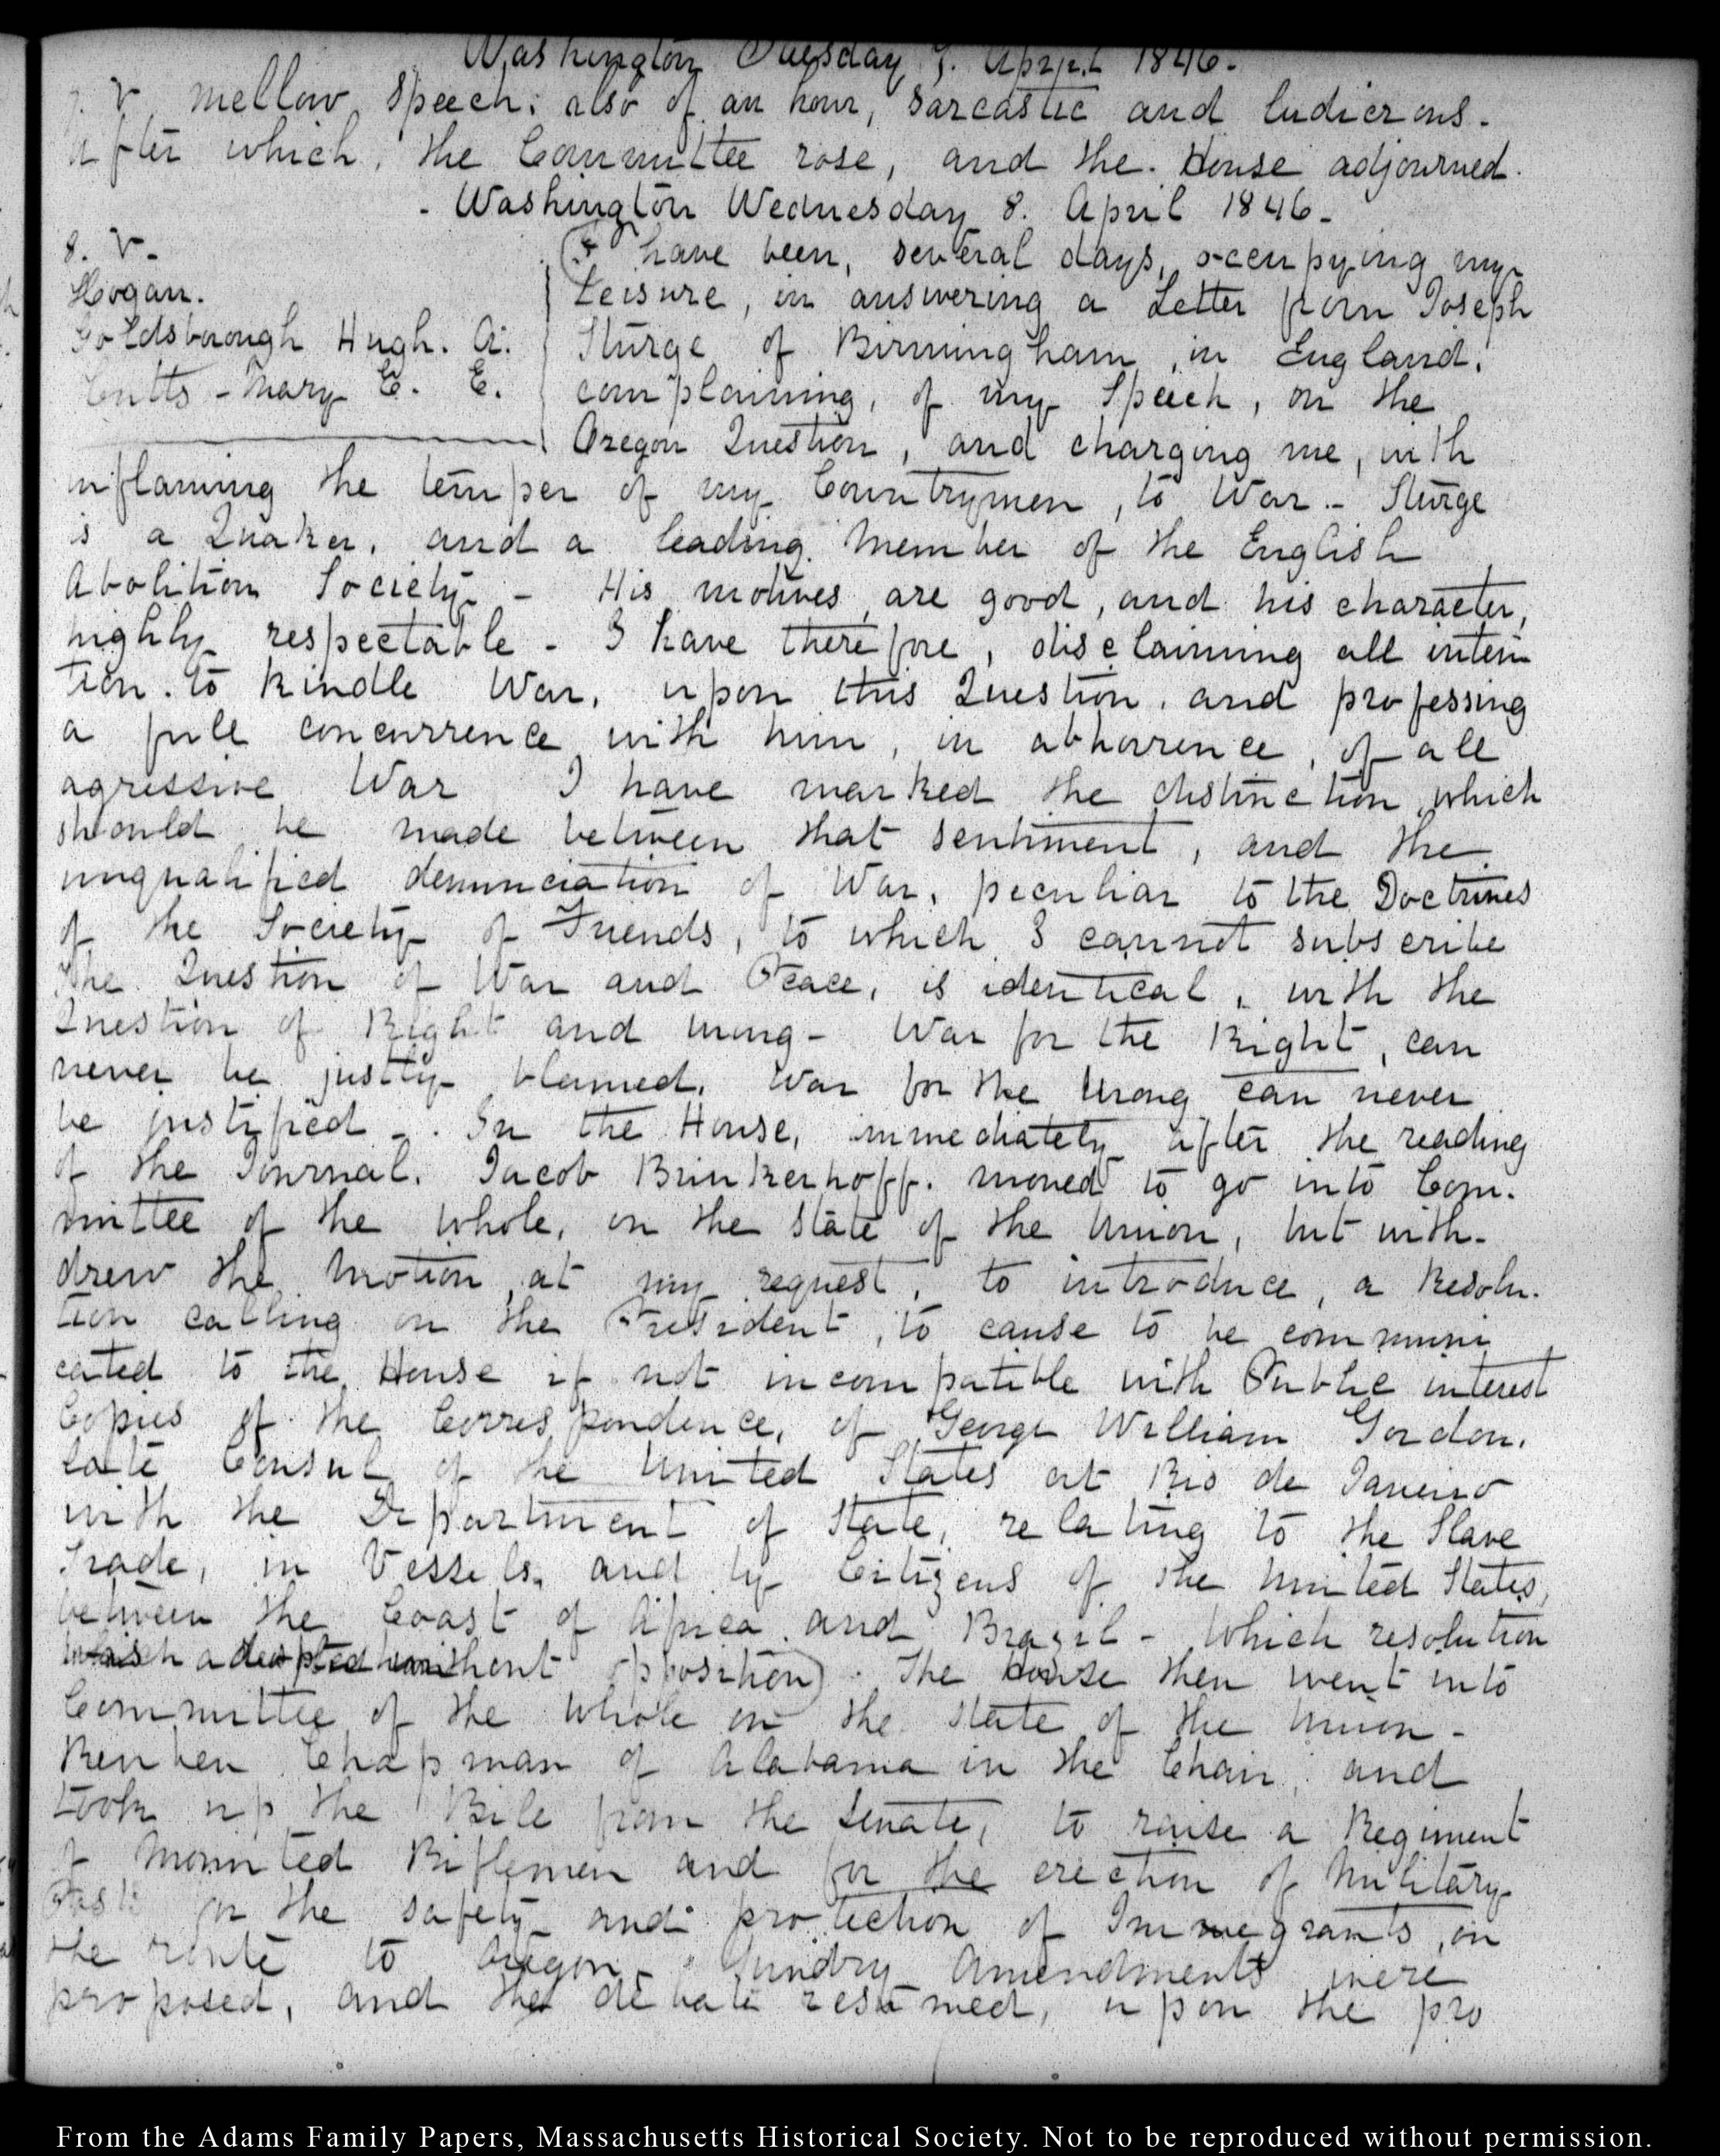 Washington Tuesday 7. April 1846.
7. V. mellow speech; also of an hour, sarcastic and ludicrous.
after which, the Committee rose, and the House adjourned.
- Washington Wednesday 8. April 1846.
8. V.
Hogan.
Goldsborough Hugh. A.
Cutts - Mary E. E.
I have been, several days, occupying my
Leisure, in answering a Letter from Joseph
Sturge of Birmingham, in England.
complaining, of my Speech, on the
Oregon Question, and charging me, with
inflaming the temper of my Countrymen, to War - Sturge
is a Quaker, and a leading Member of the English
Abolition Society - His motives are good, and his character,
highly respectable - I have therefore, disclaiming all inten
tion to kindle War, upon this Question, and professing
a full concurrence with him, in abhorrence, of all
agressive War I have marked the distinction which
should be made between that sentiment, and the
unqualified denunciation of War, peculiar to the Doctrines
of the Society of Friends, to which I cannot subscribe
The Question of War and Peace, is identical, with the
Question of Right and wrong - War for the Right, can
never be justly blamed, War for the Wrong can never
be justified - In the House, immediately after the reading
of the Journal. Jacob Brinkerhoff. moved to go into Com.
mittee of the whole, on the state of the Union, but with-
drew the motion at my request, to introduce, a Resolu.
tion calling on the President, to cause to be communi
cated to the House if not incompatible with Public interest
Copies of the Correspondence, of George William Gordon.
late Consul of the United States at Rio de Janeiro
with the Department of State, relating to the Slave
Trade, in Vessels, and by Citizens of the United States,
between the Coast of Africa and Brazil - Which resolution
was adopted without opposition). The House then went into
Committee of the Whole on the State of the Union -
Reuben Chapman of Alabama in the Chair, and
took up the Bill from the Senate, to raise a Regiment
of Mounted Riflemen and for the erection of Military
Posts for the safety and protection of Immegrants, on
the route to Oregon - Sundry Amendments were
proposed, and the debate resumed, upon the pro